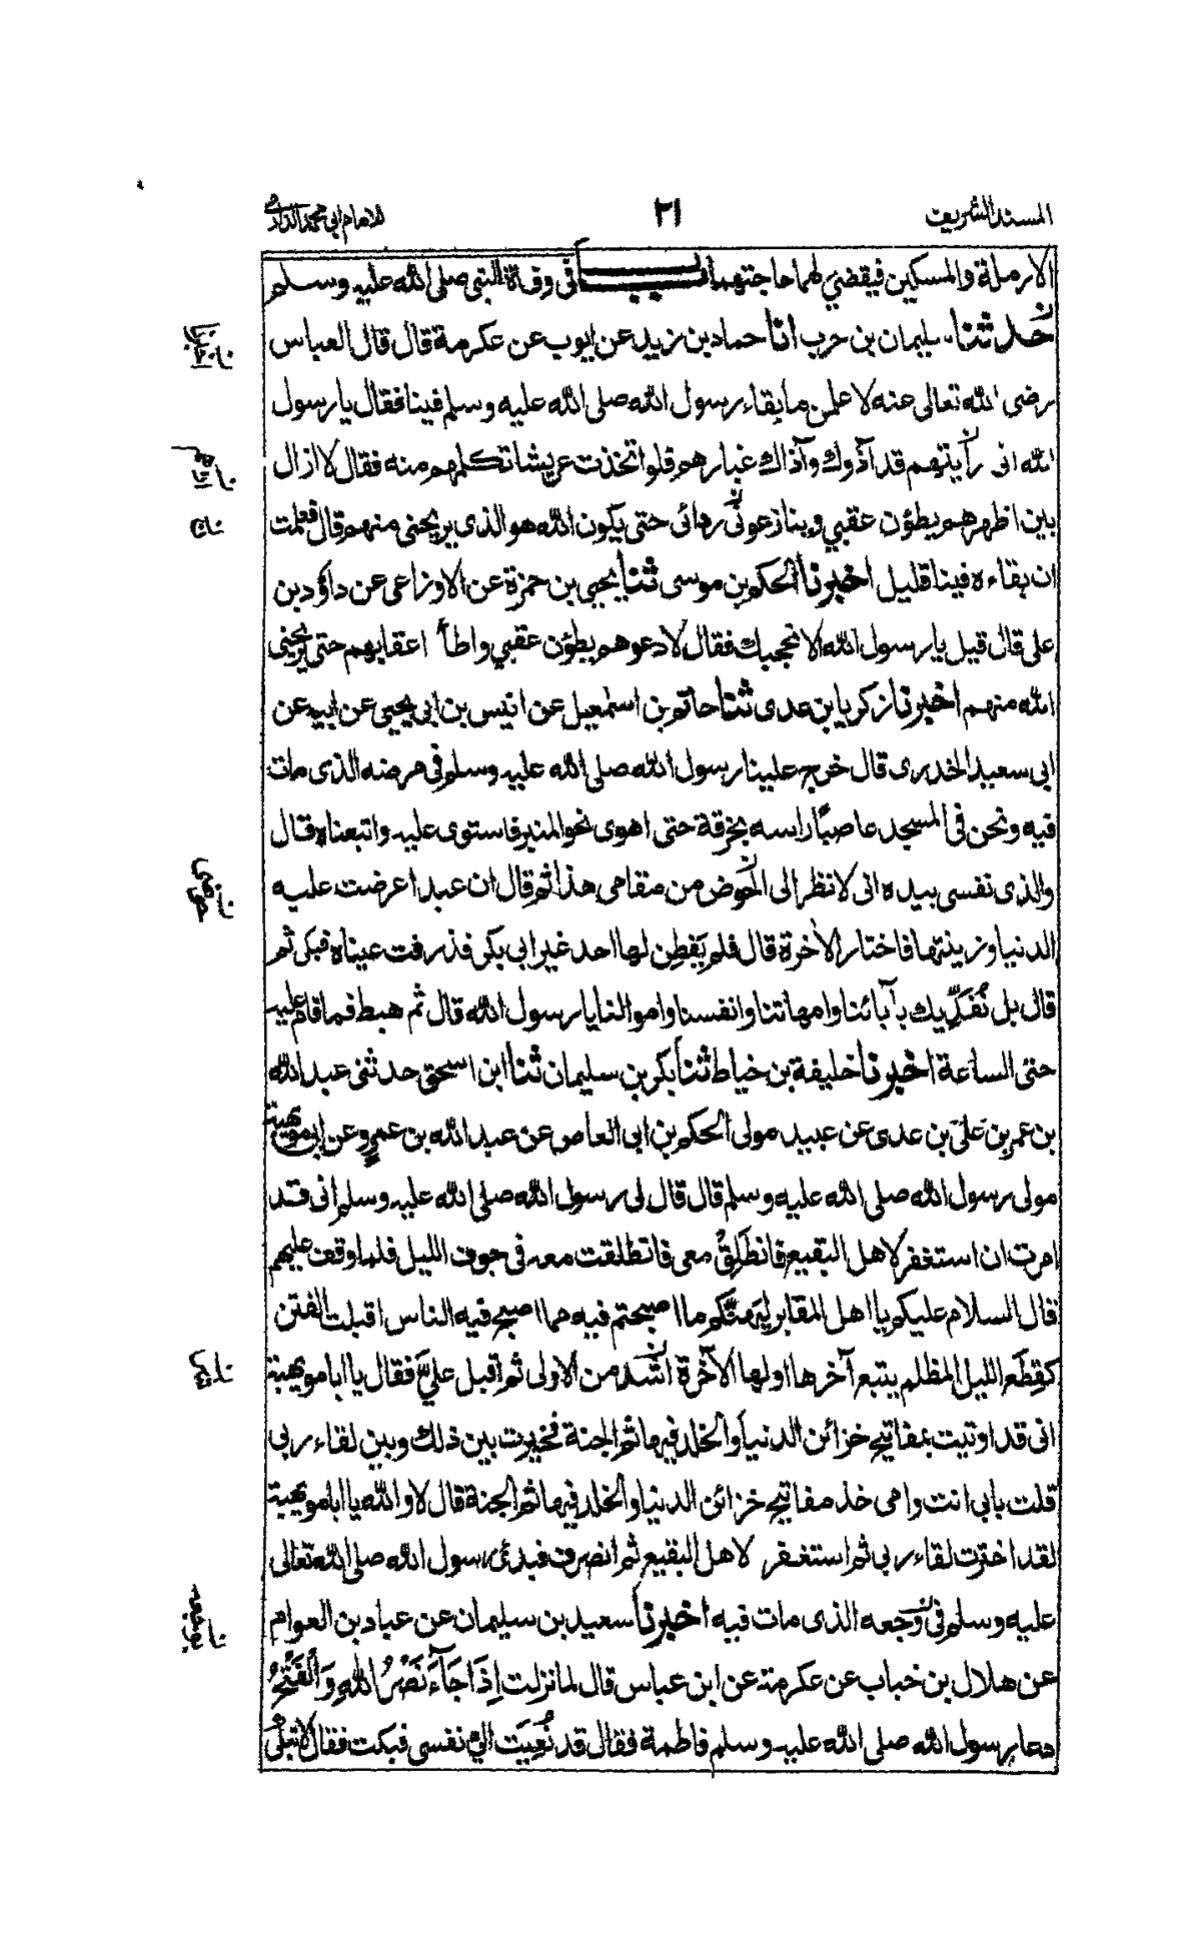 المسند الشريف
٢١
للامام ابی محمد الدارمی
الارملة والمسكين فيقضي لهما حاجتهما باب فی وفاة النبی صلی الله علیه وسلم
حدثنا سليمان بن حرب انا حماد بن زيد عن ايوب عن عكرمة قال قال العباس
رضی الله تعالی عنه لاعلمن ما بقاء رسول الله صلی الله علیه وسلم فينا فقال يا رسول
الله انی رأيتهم قد آذوك وآذاك غبارهم فلو اتخذت عريشا تكلمهم منه فقال لا ازال
بين اظهرهم يطؤن عقبي وينازعونی ردائی حتی يكون الله هو الذی يريحنی منهم قال فعلمت
ان بقاءه فينا قليل اخبرنا الحكم بن موسی ثنا يحيی بن حمزة عن الاوزاعی عن داؤد بن
علی قال قيل يا رسول الله الا نحجبك فقال لا دعوهم يطؤن عقبي واطأ اعقابهم حتی يريحنی
الله منهم اخبرنا زكريا بن عدی ثنا حاتم بن اسمعيل عن انيس بن ابی يحيی عن ابيه عن
ابی سعيد الخدری قال خرج علينا رسول الله صلی الله علیه وسلم فی مرضه الذی مات
فيه ونحن فی المسجد عاصبًا راسه بخرقة حتی اهوی نحو المنبر فاستوی عليه واتبعناه قال
والذی نفسی بيده انی لانظر الی الحوض من مقامی هذا ثم قال ان عبدا عرضت عليه
الدنيا وزينتها فاختار الاخرة قال فلم يَفطِن لها احد غير ابی بكر فذرفت عيناه فبكی ثم
قال بل نُفَدِّيك بآبائنا وامهاتنا وانفسنا واموالنا يا رسول الله قال ثم هبط فما قام عليه
حتی الساعة اخبرنا خليفة بن خياط ثنا بكر بن سليمان ثنا ابن اسحق حدثنی عبد الله
بن عمر بن علی بن عدی عن عبيد مولی الحكم بن ابی العاص عن عبد الله بن عمرٍو عن ابی مويهبة
مولی رسول الله صلی الله علیه وسلم قال قال لی رسول الله صلی الله علیه وسلم انی قد
امرت ان استغفر لاهل البقيع فانطَلِقْ معی فانطلقت معه فی جوف الليل فلما وقف عليهم
قال السلام عليكم يا اهل المقابر ليَهنّكم ما اصبحتم فيه مما اصبح فيه الناس اقبلت الفتن
كقِطَع الليل المظلم يتبع آخرها اولها الآخرة اشد من الاولی ثم اقبل علیَّ فقال يا ابا مويهبة
انی قد اوتيت بمفاتيح خزائن الدنيا والخلد فيها ثم الجنة فخيرت بين ذلك وبين لقاء ربی
قلت بابی انت وامی خذ مفاتيح خزائن الدنيا والخلد فيها ثم الجنة قال لا والله يا ابا مويهبة
لقد اخترت لقاء ربی ثم استغفر لاهل البقيع ثم انصرف فبدئ رسول الله صلی الله تعالی
علیه وسلم فی وجعه الذی مات فيه اخبرنا سعيد بن سليمان عن عباد بن العوام
عن هلال بن خباب عن عكرمة عن ابن عباس قال لما نزلت اِذَا جَآءَ نَصْرُ اللهِ وَالْفَتْحُ
دعا رسول الله صلی الله علیه وسلم فاطمة فقال قد نُعِيَت الیَّ نفسی فبكت فقال لا تبكی